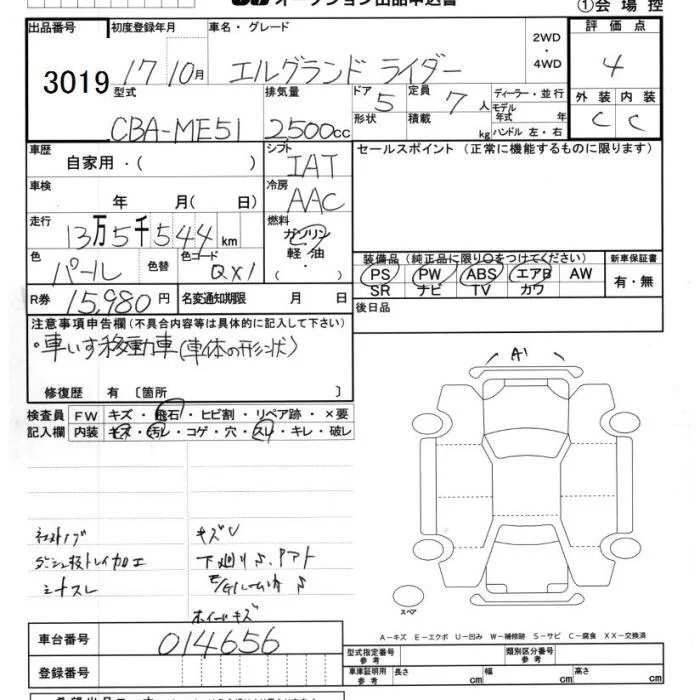 オークション出品申込書
①会場控
出品番号 初度登録年月 車名・グレード 2WD・4WD 評価点
3019 17 10月 エルグランド ライダー 4
型式 排気量 ドア 5 定員 7人 ディーラー・並行 外装 内装
CBA-ME51 2500cc 形状 積載 kg モデル年式 年 ハンドル 左・右 C C
車歴 シフト セールスポイント (正常に機能するものに限ります)
自家用・( ) IAT
車検 冷房
年 月( 日) AAC
走行 燃料
13万5千544km ガソリン
色 色替 色コード 軽油
パール QX1 ・( )
装備品(純正品に限り○をつけてください) 新車保証書
PS PW ABS エアB AW 有・無
SR ナビ TV カワ
R券 15,980円 名変通知期限 月 日 後日品
注意事項申告欄(不具合内容等は具体的に記入して下さい)
・車いす移動車(車体の形状)
修復歴 有 〔箇所 〕
A1
検査員 FW キズ・飛石・ヒビ割・リペア跡・×要
記入欄 内装 キズ・汚レ・コゲ・穴・スレ・キレ・破レ
キズU
シートスレ
ホイールキズ
スペア
A-キズ E-エクボ U-凹み W-補修跡 S-サビ C-腐食 XX-交換済
車台番号 014656
登録番号
型式指定番号 参考 類別区分番号 参考
車庫証明用 参考 長さ cm 幅 cm 高さ cm